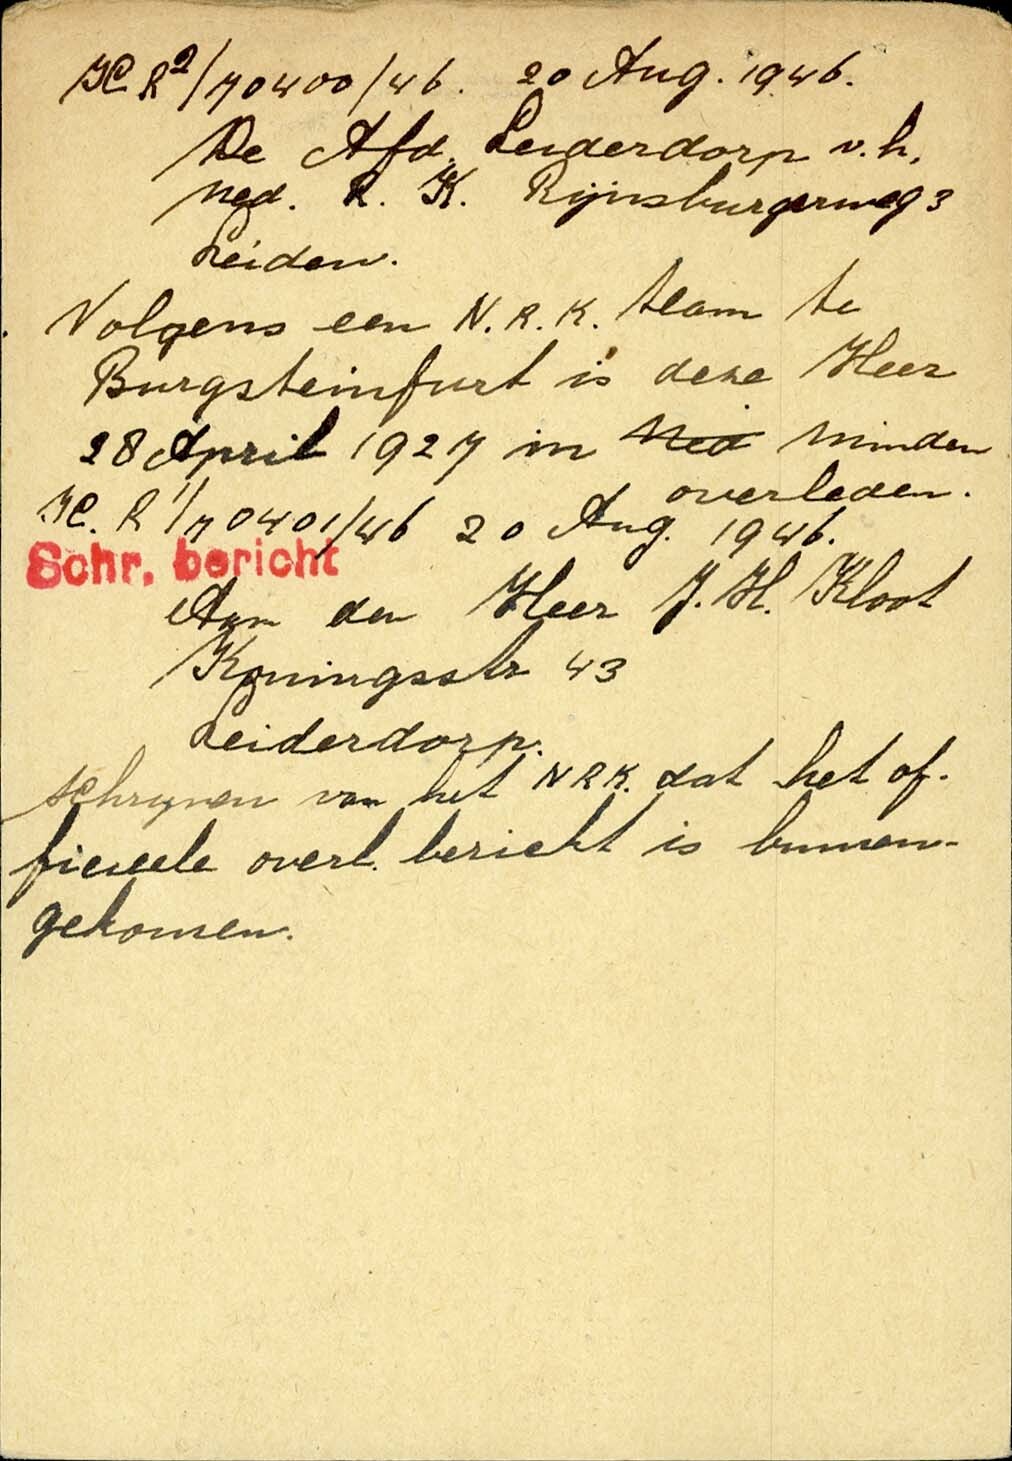 IC R2/70400/46. 20 Aug. 1946.
De Afd. Leiderdorp v.h.
Ned. R. K. Rijnsburgerweg 3
Leiden.
Volgens een N.R.K. team te
Burgsteinfurt is deze Heer
28 April 1927 in Ned Minden
overleden.
IC. R1/70401/46 20 Aug. 1946.
Schr. bericht
Aan den Heer J. H. Kloot
Koningsstr 43
Leiderdorp.
schrijven van het N R K. dat het of-
ficieele overl. bericht is binnen-
gekomen.